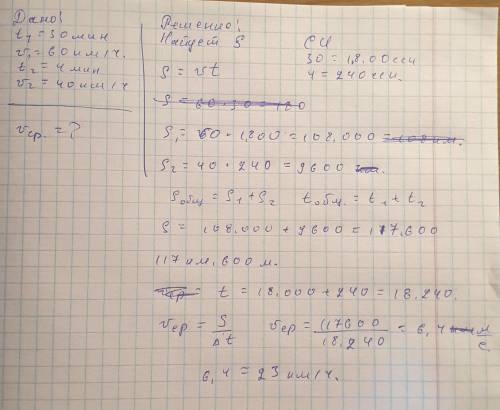 Дано!
t₁ = 30 мин
v₁ = 60 км/ч.
t₂ = 4 мин
v₂ = 40 км/ч
vср. = ?
Решение!
Найдем S
СИ
30 = 1,8.00сек
4 = 240сек.
S = vt
S = 60 · 30 = 180
S₁ = 60 · 1800 = 108,000 = 108 км.
S₂ = 40 · 240 = 9600
Sобщ = S₁ + S₂ tобщ. = t₁ + t₂
S = 108.000 + 9600 = 117,600
117 км, 600 м.
vср = t = 18,000 + 240 = 18,240.
vср = S/Δt vср = 117600/18,240 = 6,4 м/с
6,4 = 23 км/ч.